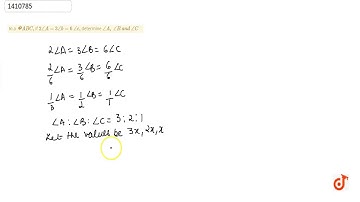 1410785
In a ΔABC, if 2∠A = 3∠B = 6∠C, determine ∠A, ∠B and ∠C
2∠A = 3∠B = 6∠C
2/6 ∠A = 3/6 ∠B = 6/6 ∠C
1/3 ∠A = 1/2 ∠B = 1/1 ∠C
∠A : ∠B : ∠C = 3 : 2 : 1
Let the values be 3x, 2x, x